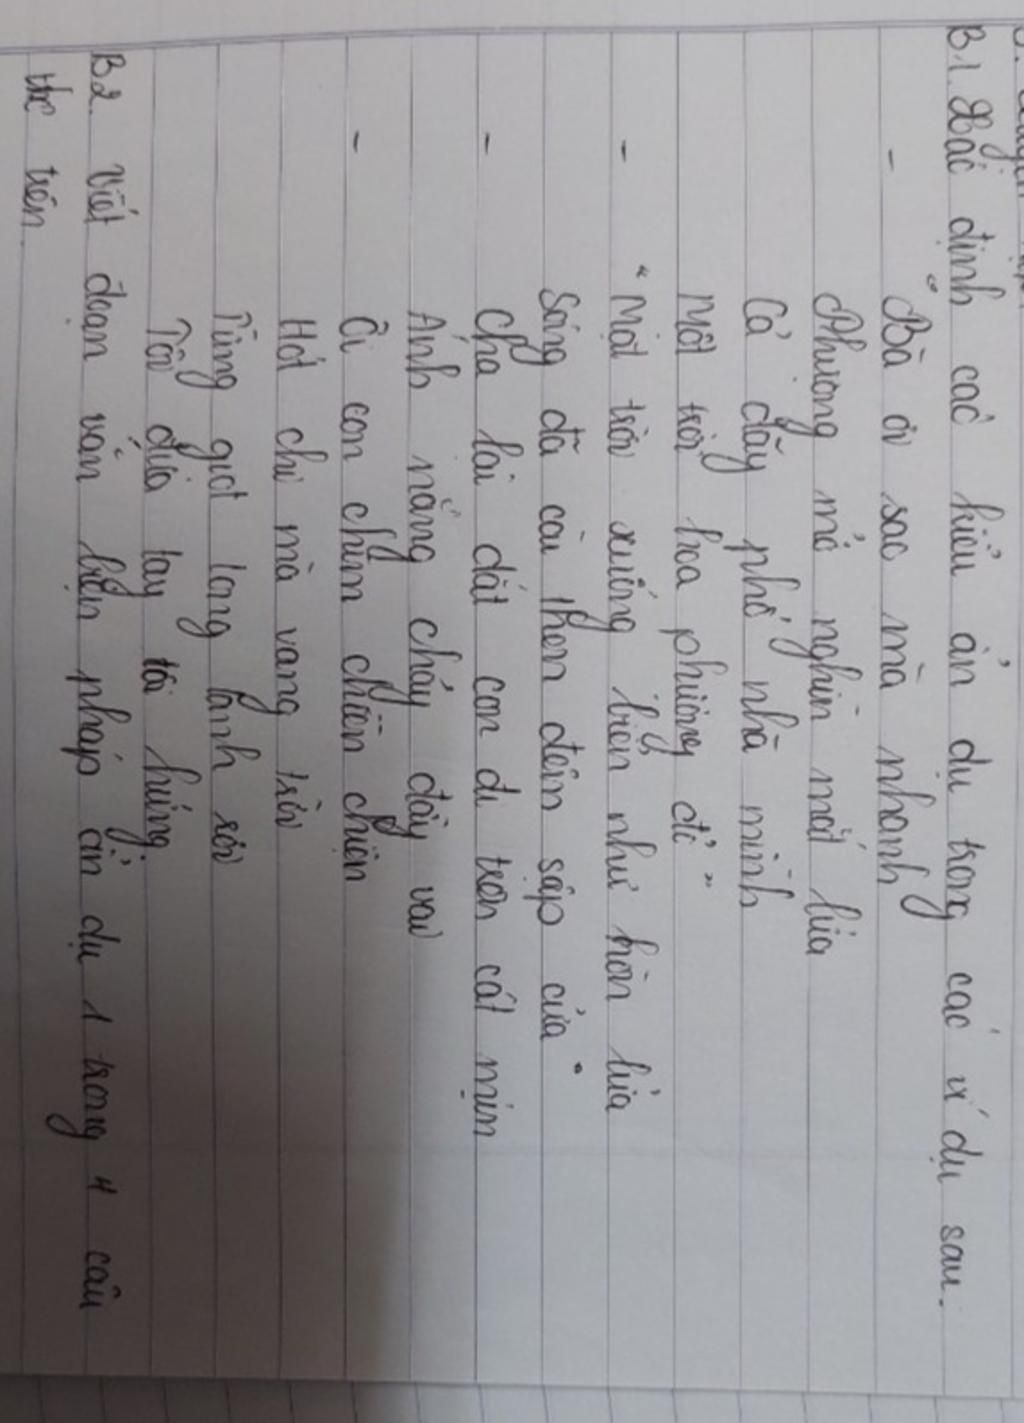 B1. Xác định các kiểu ẩn dụ trong các ví dụ sau.
- "Bà ơi sao mà nhanh
Phượng mở nghìn mắt lửa
Cả dãy phố nhà mình
Một trời hoa phượng đỏ"
- "Mặt trời xuống biển như hòn lửa
Sóng đã cài then đêm sập cửa"
- Cha lại dắt con đi trên cát mịn
Ánh nắng chảy đầy vai
- Ơi con chim chiền chiện
Hót chi mà vang trời
Từng giọt long lanh rơi
Tôi đưa tay tôi hứng
B2. Viết đoạn văn biện pháp ẩn dụ 1 trong 4 câu
thơ trên.